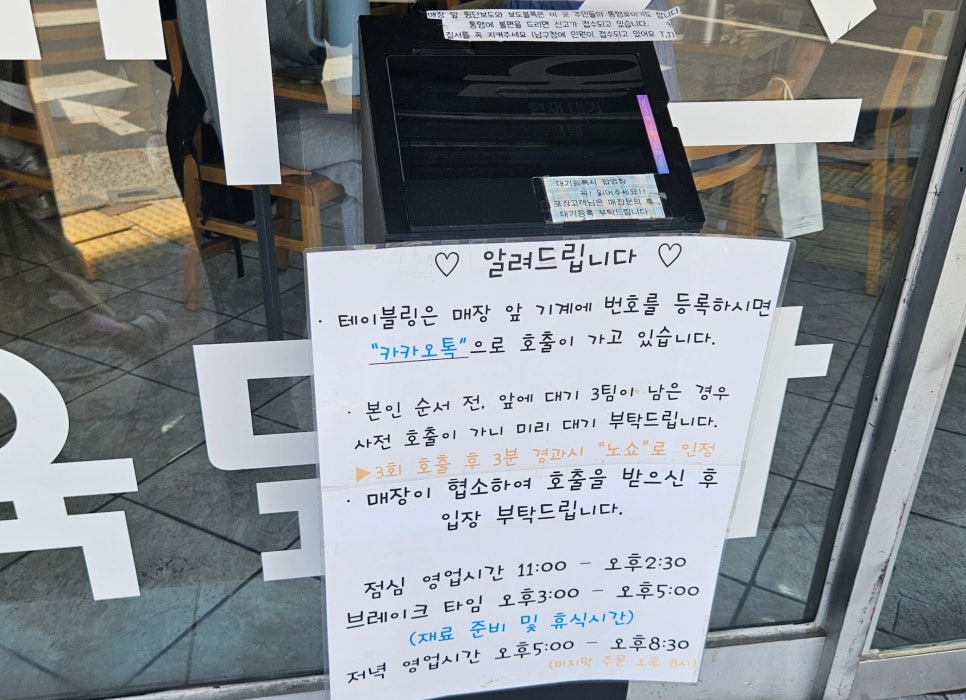 매장 앞 횡단보도와 보도블록은 이 곳 주민들의 통행로이기도 합니다.
통행에 불편을 드리면 신고가 접수되고 있습니다.
질서를 꼭 지켜주세요 (남구청에 민원이 접수되고 있어요 T.T)
현재 대기
대기등록시 팝업창
꼭! 읽어주세요!!
포장고객님은 매장문의 후
대기등록 부탁드립니다
♡ 알려드립니다 ♡
· 테이블링은 매장 앞 기계에 번호를 등록하시면
"카카오톡"으로 호출이 가고 있습니다.
· 본인 순서 전, 앞에 대기 3팀이 남은 경우
사전 호출이 가니 미리 대기 부탁드립니다.
▶3회 호출 후 3분 경과시 "노쇼"로 인정
· 매장이 협소하여 호출을 받으신 후
입장 부탁드립니다.
점심 영업시간 11:00 - 오후2:30
브레이크 타임 오후3:00 - 오후5:00
(재료 준비 및 휴식시간)
저녁 영업시간 오후5:00 - 오후8:30
(마지막 주문 오후 8시)